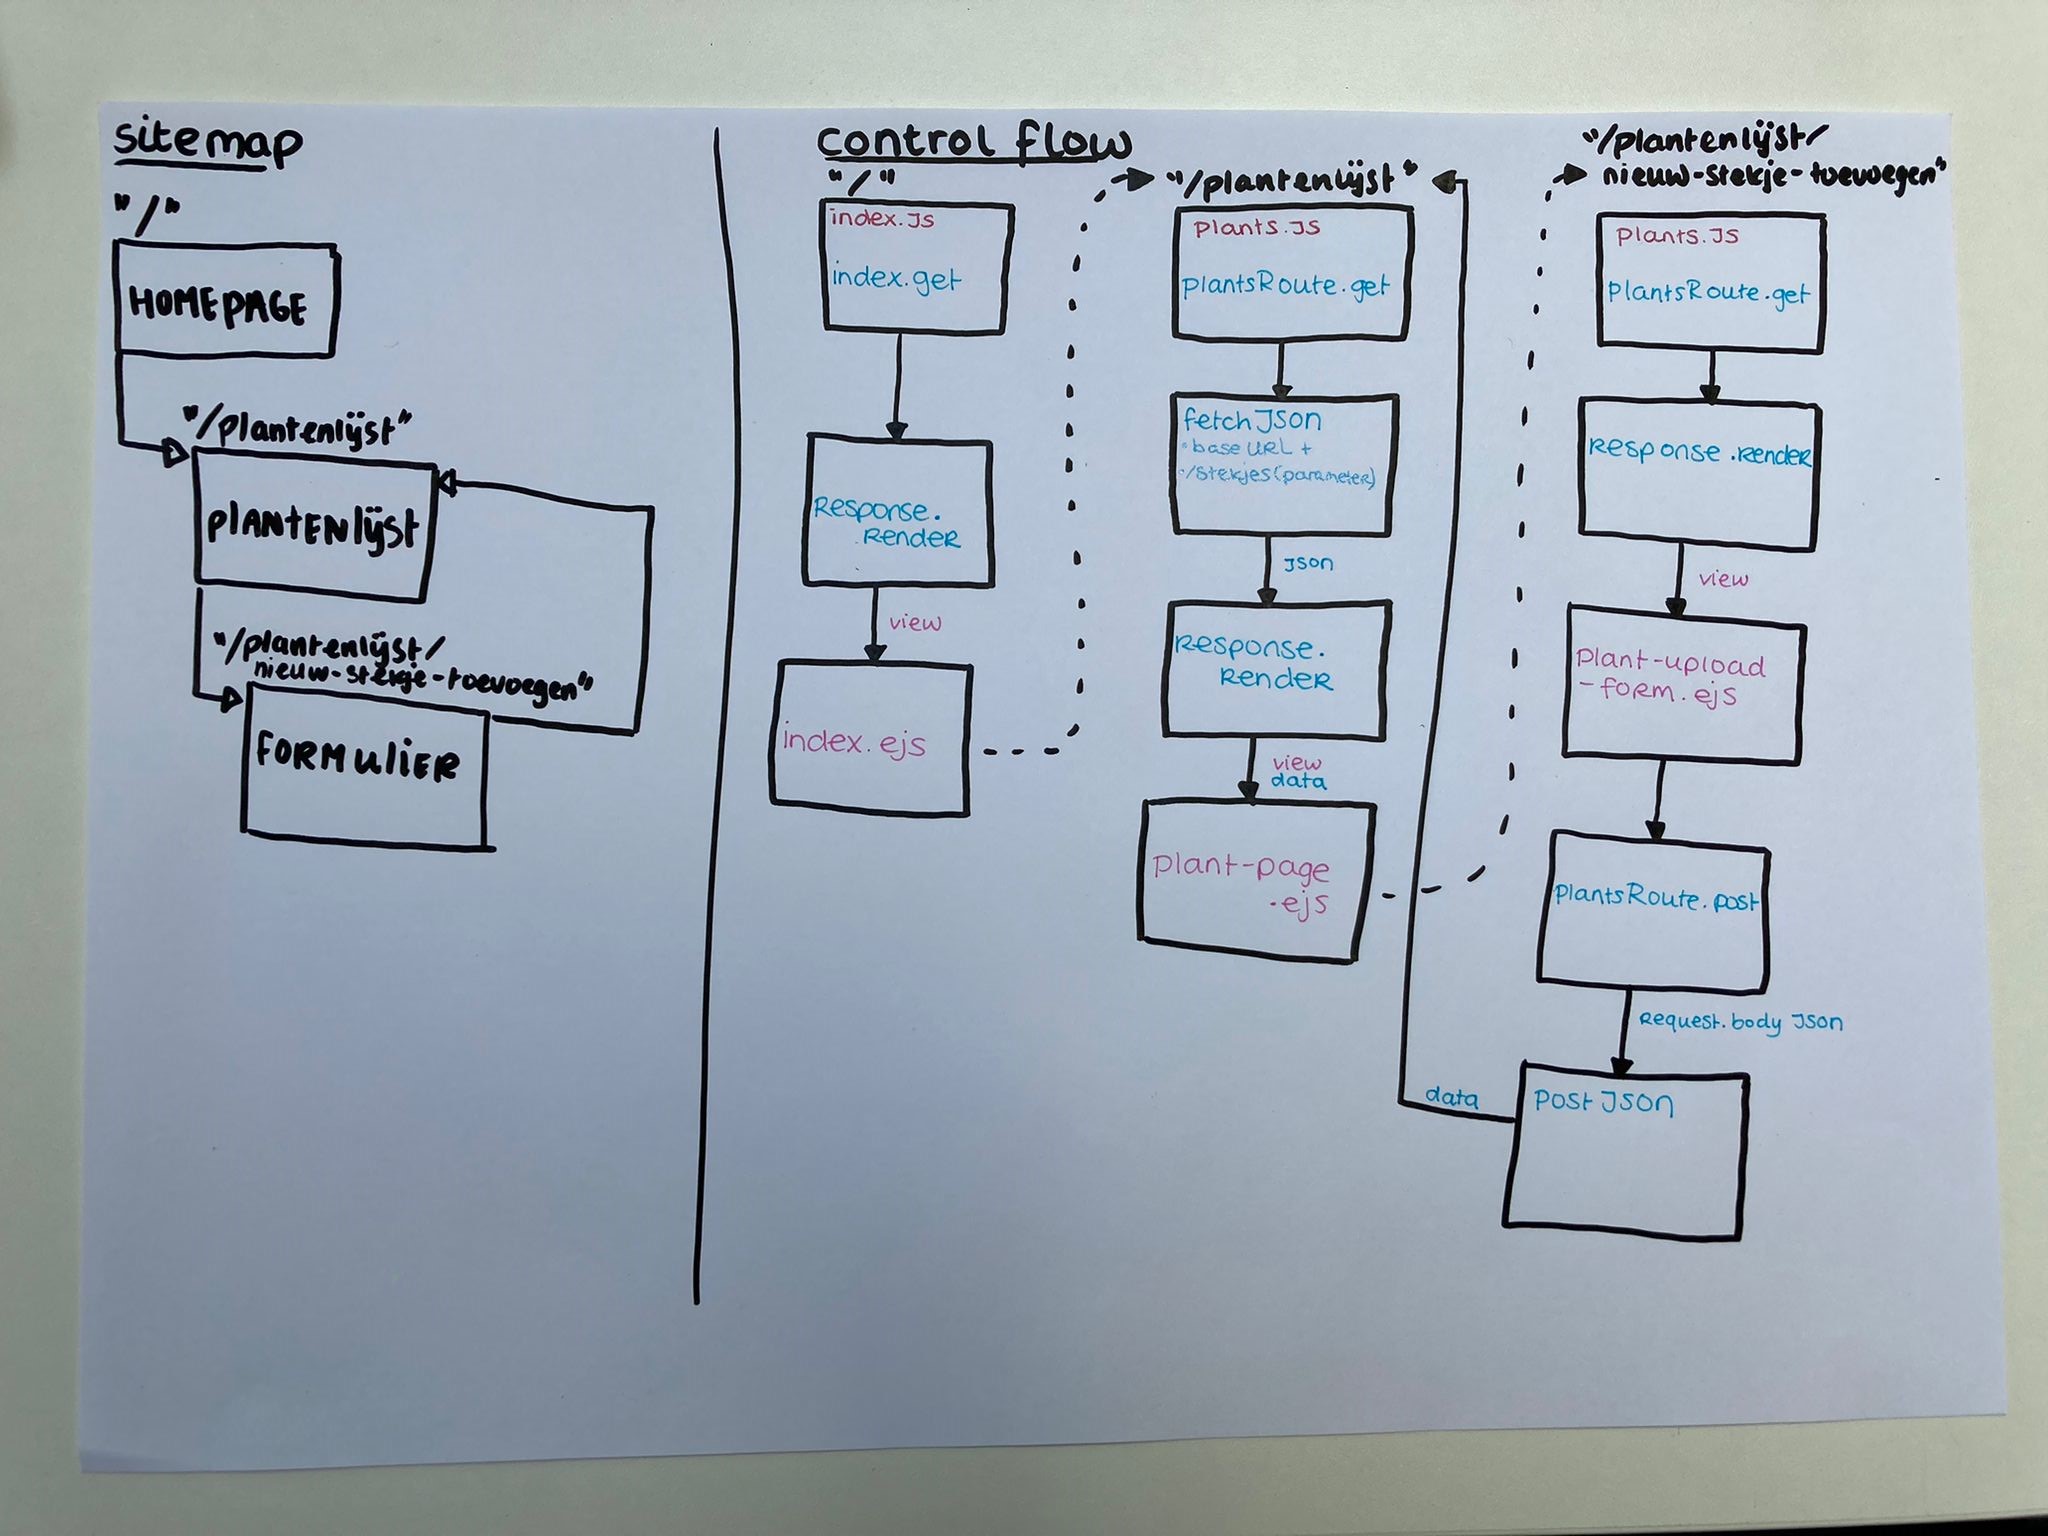 sitemap
"/"
HOMEPAGE
"/plantenlijst"
PLANTENLIJST
"/plantenlijst/
nieuw-stekje-toevoegen"
FORMULIER
control flow
"/"
index.JS
index.get
Response.
.Render
view
index.ejs
"/plantenlijst"
plants.JS
plantsRoute.get
fetchJSON
•base URL +
•/stekjes(parameter)
JSON
Response.
Render
view
data
plant-page
.ejs
"/plantenlijst/
nieuw-stekje-toevoegen"
plants.JS
plantsRoute.get
Response.Render
view
plant-upload
-form.ejs
plantsRoute.post
Request.body JSON
post JSON
data